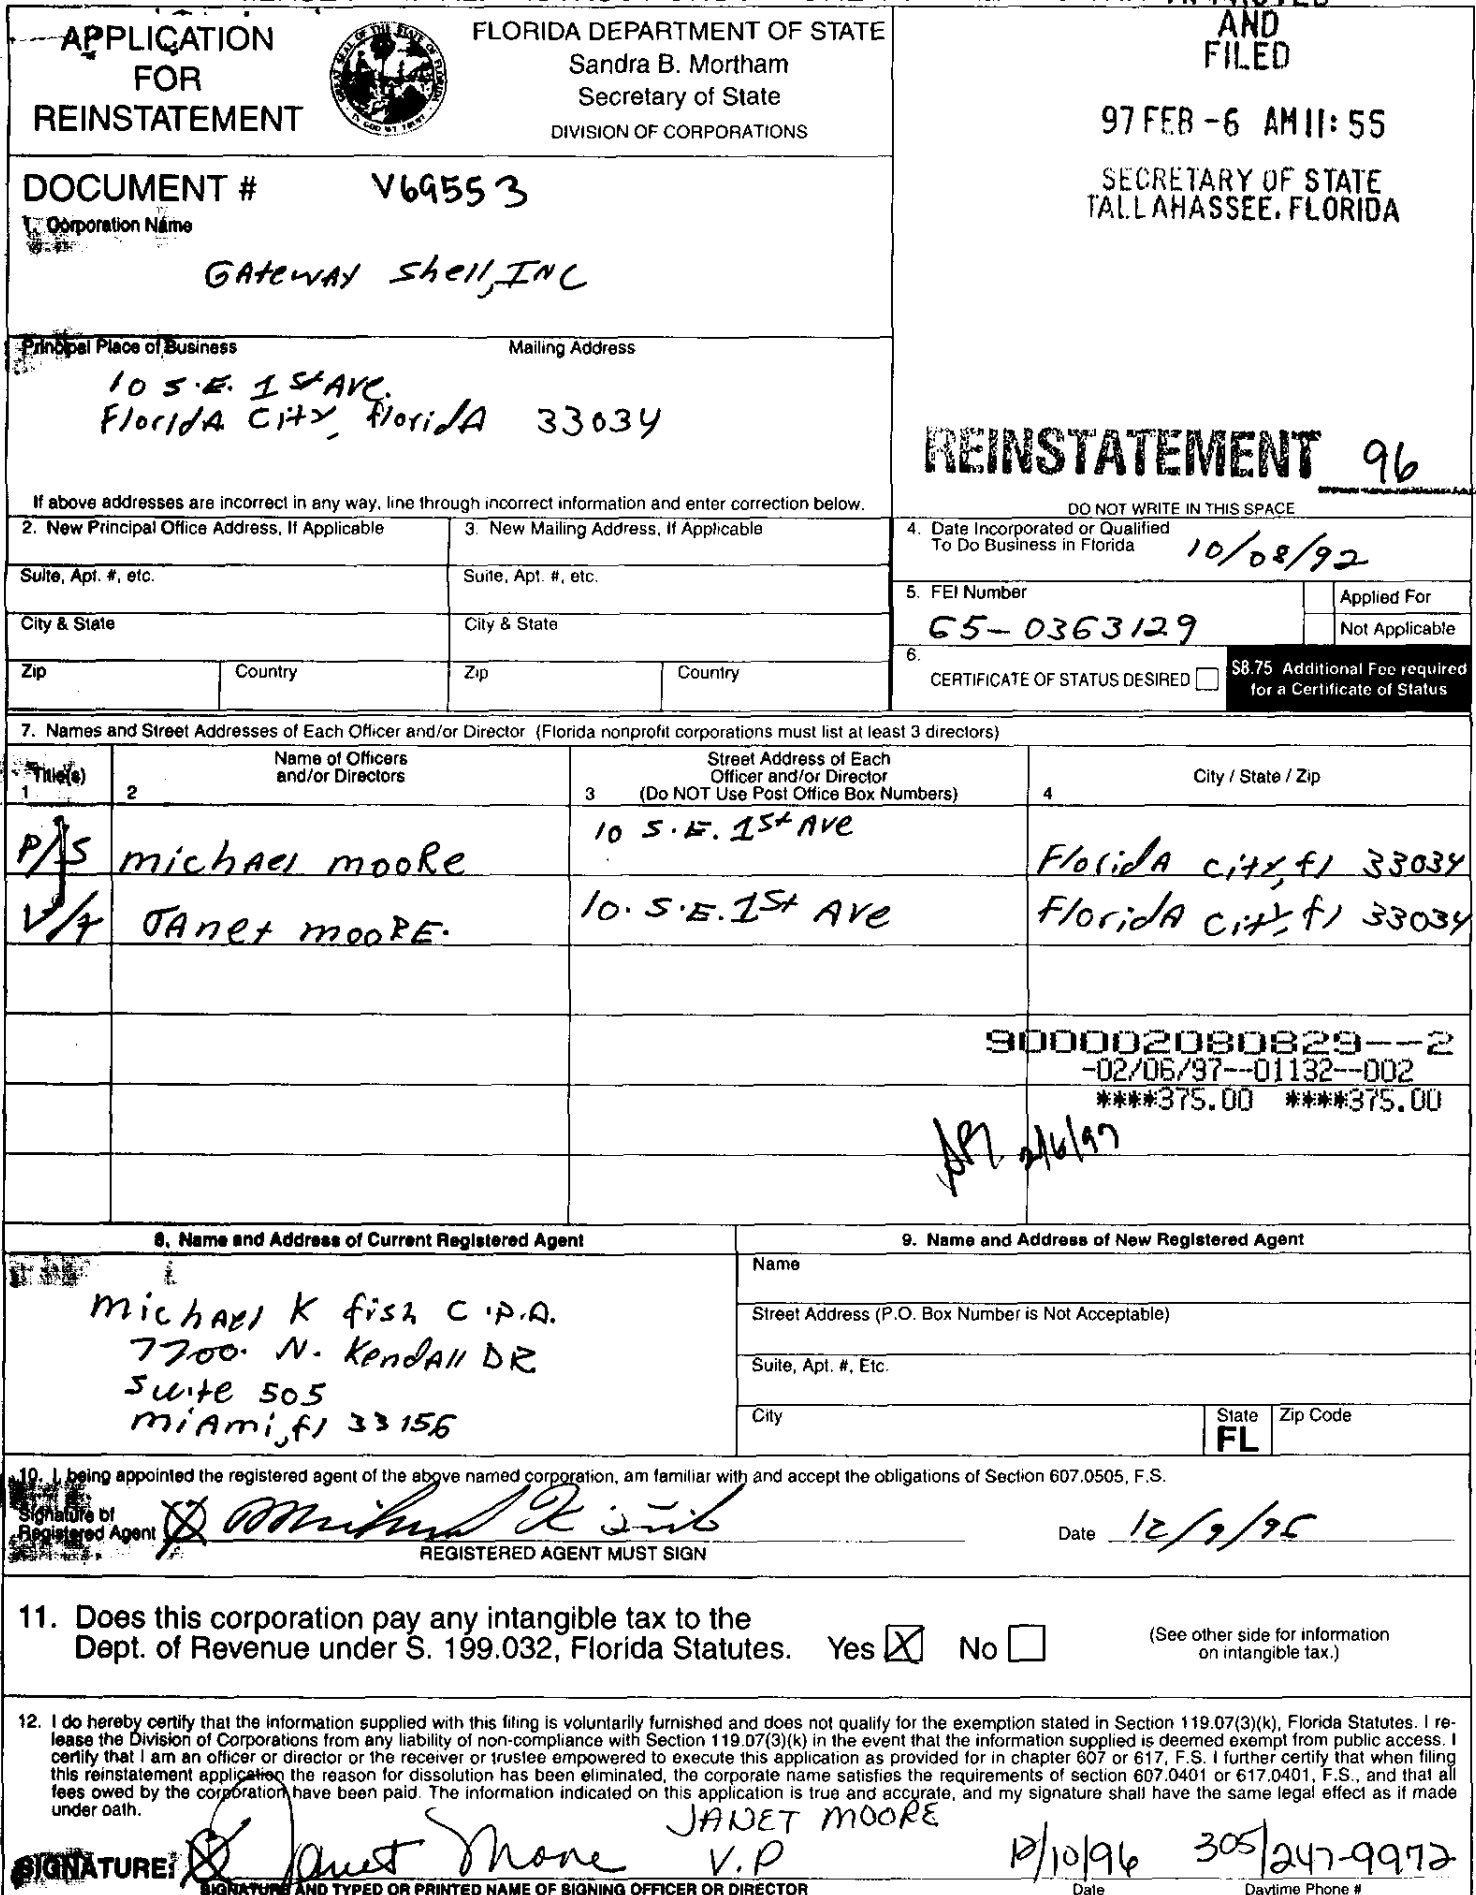 APPLICATION
FOR
REINSTATEMENT
FLORIDA DEPARTMENT OF STATE
Sandra B. Mortham
Secretary of State
DIVISION OF CORPORATIONS
AND
FILED
97 FEB -6 AM 11: 55
SECRETARY OF STATE
TALLAHASSEE, FLORIDA
DOCUMENT # V69553
1. Corporation Name
GAteWAY Shell, INC
Principal Place of Business Mailing Address
10 S.E. 1st AVE.
FloridA City, floridA 33034
REINSTATEMENT 96
If above addresses are incorrect in any way, line through incorrect information and enter correction below.
DO NOT WRITE IN THIS SPACE
2. New Principal Office Address, If Applicable
3. New Mailing Address, If Applicable
4. Date Incorporated or Qualified
To Do Business in Florida 10/08/92
Suite, Apt. #, etc.
Suite, Apt. #, etc.
5. FEI Number
65-0363129
Applied For
Not Applicable
City & State
City & State
6.
CERTIFICATE OF STATUS DESIRED
$8.75 Additional Fee required
for a Certificate of Status
Zip Country Zip Country
7. Names and Street Addresses of Each Officer and/or Director (Florida nonprofit corporations must list at least 3 directors)
Title(s)
1
Name of Officers
and/or Directors
2
Street Address of Each
Officer and/or Director
3 (Do NOT Use Post Office Box Numbers)
City / State / Zip
4
P/S michAel mooRe 10 S.E. 1st Ave FloridA City, fl 33034
V/T JAnet mooRE. 10. S.E. 1st Ave FloridA City, fl 33034
900002080829--2
-02/06/97--01132--002
****375.00 ****375.00
2/6/97
8. Name and Address of Current Registered Agent
9. Name and Address of New Registered Agent
michAel K fish C.P.A.
7700. N. KendAll DR
Suite 505
miAmi, fl 33156
Name
Street Address (P.O. Box Number is Not Acceptable)
Suite, Apt. #, Etc.
City
State
FL
Zip Code
10. I, being appointed the registered agent of the above named corporation, am familiar with and accept the obligations of Section 607.0505, F.S.
Signature of
Registered Agent
Date 12/9/96
REGISTERED AGENT MUST SIGN
11. Does this corporation pay any intangible tax to the
Dept. of Revenue under S. 199.032, Florida Statutes. Yes X No
(See other side for information
on intangible tax.)
12. I do hereby certify that the information supplied with this filing is voluntarily furnished and does not qualify for the exemption stated in Section 119.07(3)(k), Florida Statutes. I re-
lease the Division of Corporations from any liability of non-compliance with Section 119.07(3)(k) in the event that the information supplied is deemed exempt from public access. I
certify that I am an officer or director or the receiver or trustee empowered to execute this application as provided for in chapter 607 or 617, F.S. I further certify that when filing
this reinstatement application the reason for dissolution has been eliminated, the corporate name satisfies the requirements of section 607.0401 or 617.0401, F.S., and that all
fees owed by the corporation have been paid. The information indicated on this application is true and accurate, and my signature shall have the same legal effect as if made
under oath.
JANET MOORE
SIGNATURE: Janet Moore V.P 12/10/96 305/247-9972
SIGNATURE AND TYPED OR PRINTED NAME OF SIGNING OFFICER OR DIRECTOR Date Daytime Phone #